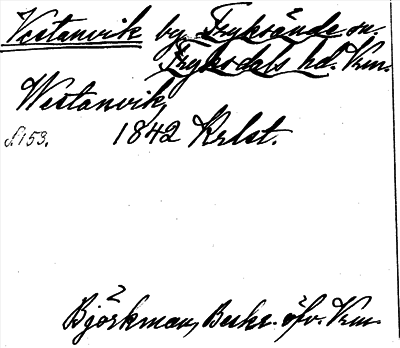 Vestanvik by Fryksände sn.
Fryksdals hd. Vrm.
Westanvik,
s. 153. 1842 Krlst.
Björkman, Beskr. öfv. Vrm.